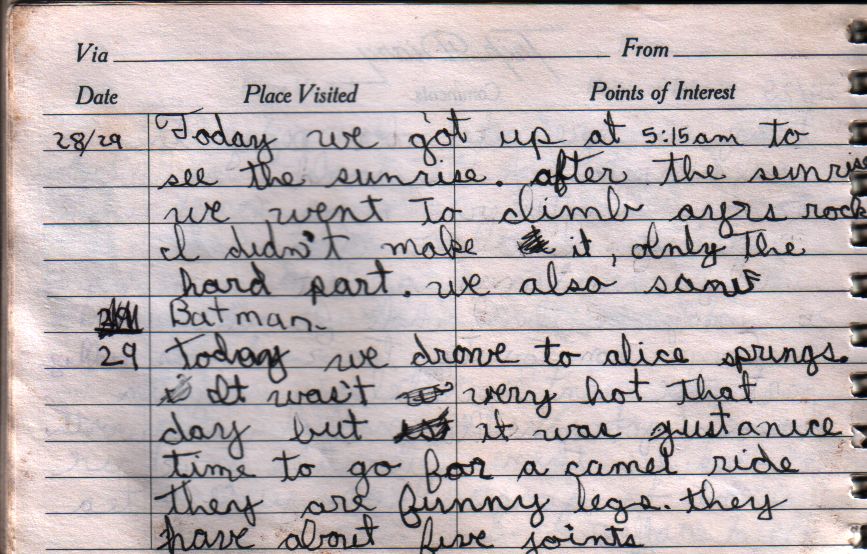 Via From
Date Place Visited Points of Interest
28/29 Today we got up at 5:15am to
see the sunrise. after the sunrise
we went To climb ayrs rock
I didn't make it, only The
hard part. we also saw
Batman.
29 Today we drove to alice springs.
It was't very hot that
day but it was gust a nice
time to go for a camel ride
they are funny legs. they
have about five joints